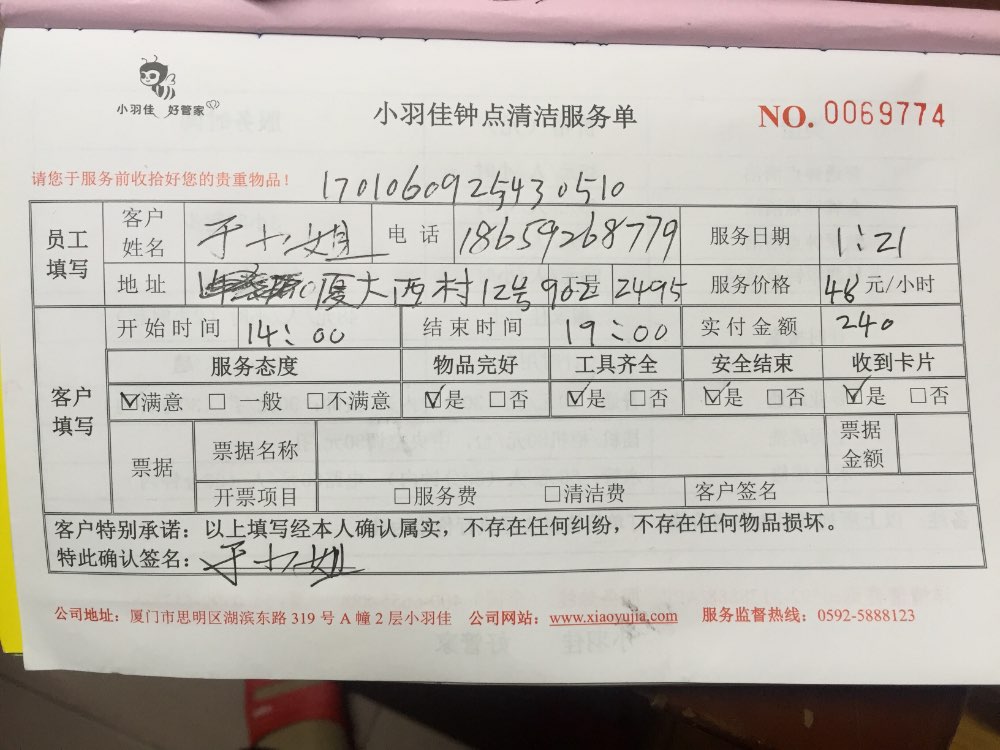 小羽佳 好管家
小羽佳钟点清洁服务单
NO. 0069774
请您于服务前收拾好您的贵重物品！
1701060925430510
员工填写
客户姓名 于小姐 电话 18659268779 服务日期 1:21
地址 厦大西村12号902 工号 2495 服务价格 48 元/小时
客户填写
开始时间 14:00 结束时间 19:00 实付金额 240
服务态度 物品完好 工具齐全 安全结束 收到卡片
☑满意 □一般 □不满意 ☑是 □否 ☑是 □否 ☑是 □否 ☑是 □否
票据 票据名称 票据金额
开票项目 □服务费 □清洁费 客户签名
客户特别承诺：以上填写经本人确认属实，不存在任何纠纷，不存在任何物品损坏。
特此确认签名：于小姐
公司地址：厦门市思明区湖滨东路 319 号 A 幢 2 层小羽佳 公司网站：www.xiaoyujia.com 服务监督热线：0592-5888123